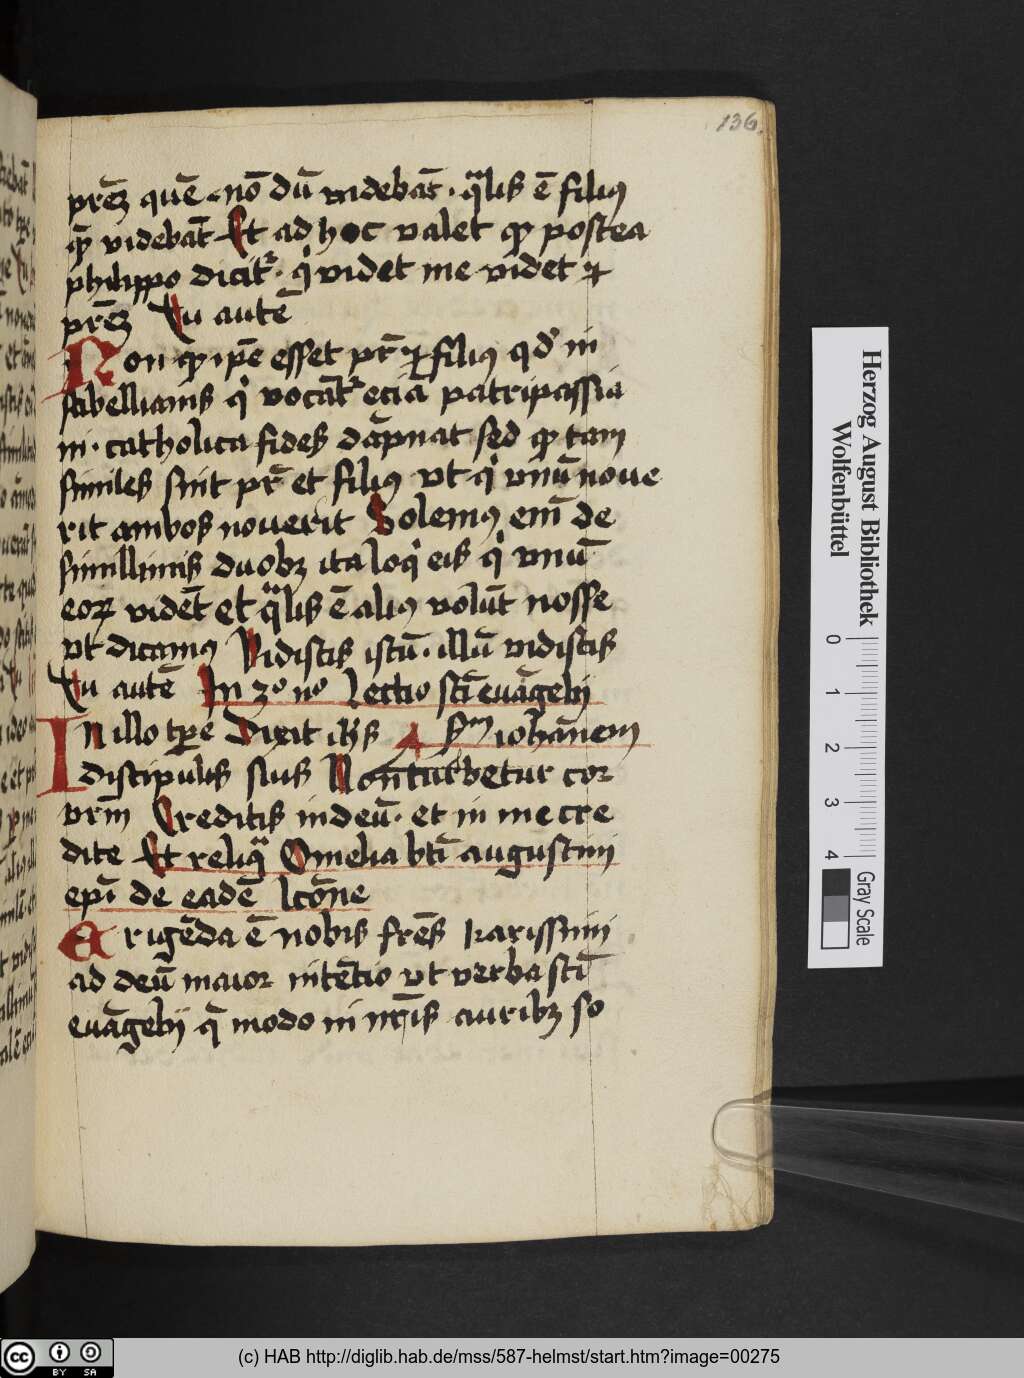 136.
prēꝫ quē · nō dū videbāt · qͣlis ē filiꝯ
quē videbāt Et ad hoc valet qꝫ postea
philippo dicit᷑ · qͥ videt me videt ⁊
prēꝫ Tu autē
Non qꝫ ip̄e esset pr̄ ⁊ filiꝯ qd̓ in
sabellianis qͥ vocāt᷑ eciā patripassia
ni · catholica fides dāpnat sed qꝫ tam
similes sint pr̄ et filiꝯ vt qͥ vnū noue
rit ambos nouerit Solemꝯ em̄ de
simillimis duobꝫ ita loqͥ eis qͥ vnū
eoꝝ vidēt et qͣlis ē aliꝯ volūt nosse
vt dicamꝯ Vidistis istū · illū vidistis
Tu autē In 3º nº Lectio sc̄i euāgelij
In illo tp̄e Dixit ih̄s 4 Sᵐ iohānem
discipulis suis Non turbetur cor
vr̄m Creditis in deū · et in me cre
dite Et reliqͣ Omelia bt̄i augustini
ep̄i de eadē lcōne
Erigēda ē nobis frēs karissimi
ad deū maior intētio vt verba sc̄i
euāgelij q̄ modo in nr̄is auribꝫ so
Herzog August Bibliothek
Wolfenbüttel
0 1 2 3 4
Gray Scale
cc BY SA
(c) HAB http://diglib.hab.de/mss/587-helmst/start.htm?image=00275